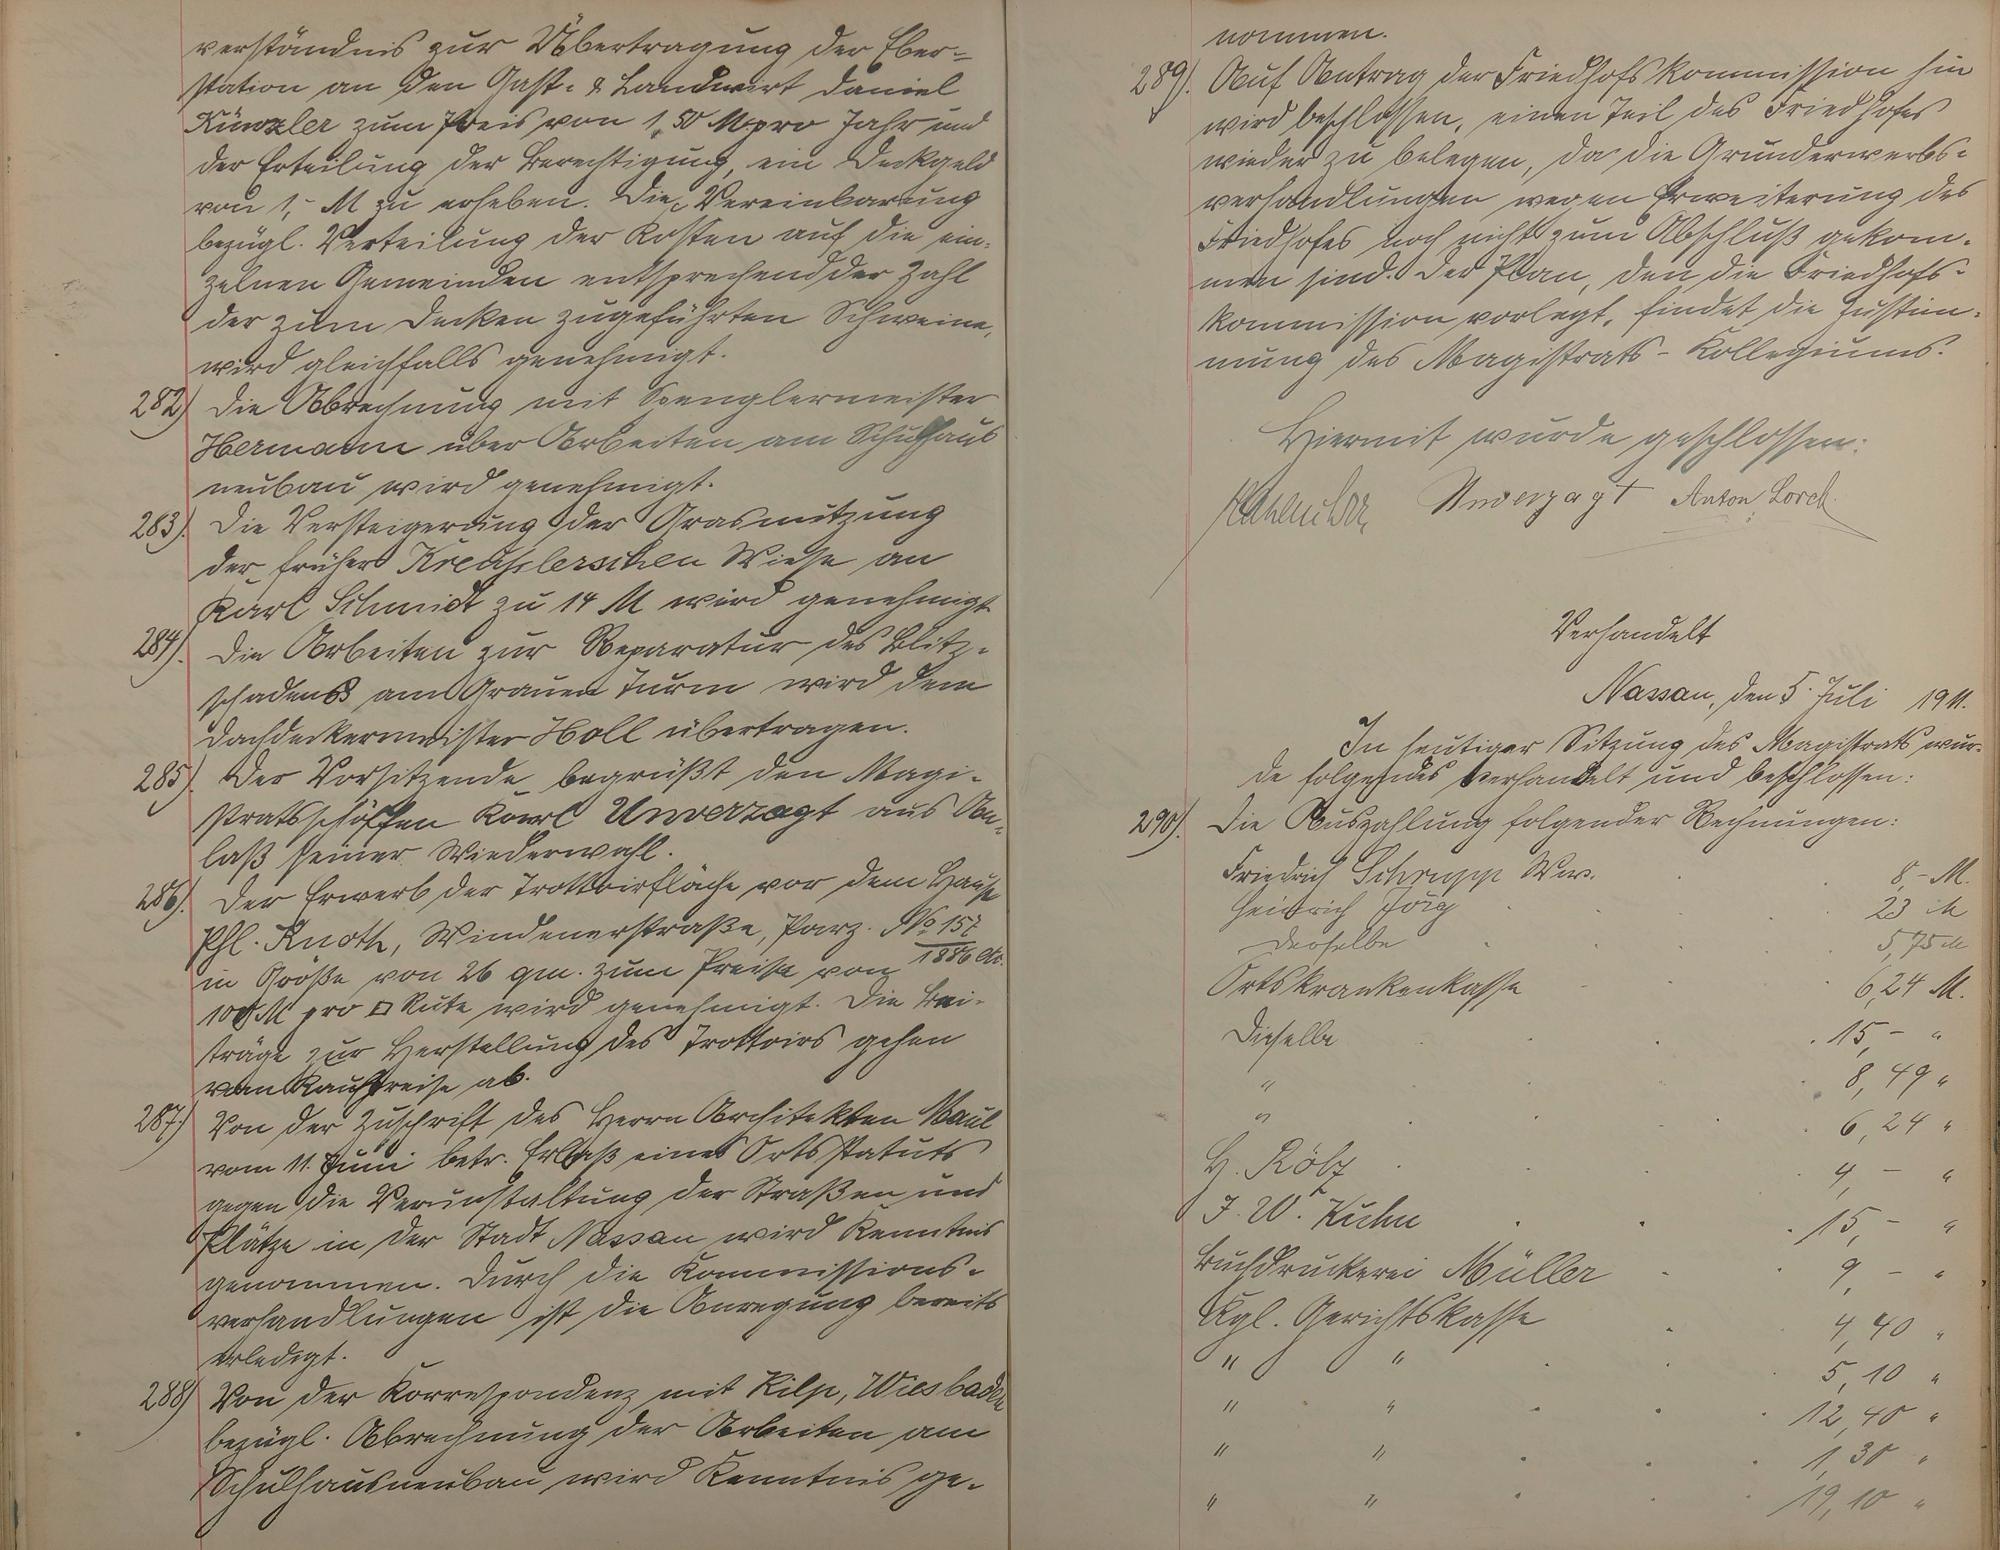 verständnis zur Übertragung der Eber-
station an den Gast- & Landwirt Daniel
Künzler zum Preis von 1,50 M pro Jahr und
der Erteilung der Berechtigung, ein Deckgeld
von 1,- M zu erheben. Die Vereinbarung
bezügl. Verteilung der Kosten auf die ein-
zelnen Gemeinden entsprechend der Zahl
der zum Decken zugeführten Schweine,
wird gleichfalls genehmigt.
282) Die Abrechnung mit Spenglermeister
Hermann über Arbeiten am Schulhaus
neubau wird genehmigt.
283) Die Versteigerung der Grasnutzung
der früher Kreuslerschen Wiese an
Karl Schmidt zu 14 M wird genehmigt
284). Die Arbeiten zur Reparatur des Blitz-
schadens am Grauen Turm wird dem
Dachdeckermeister Holl übertragen.
285). Der Vorsitzende begrüßt den Magi-
stratsschöffen Karl Unverzagt aus An-
laß seiner Wiederwahl.
286). Der Erwerb der Trottoirfläche vor dem Hause
Phl. Knoth, Windenerstraße, Parz. No 157
in Größe von 26 qm. zum Preise von 1886 Ar.
100 M pro □ Rute wird genehmigt. Die Bei-
träge zur Herstellung des Trottoirs gehen
vom Kaufpreise ab.
287) Von der Zuschrift des Herrn Architekten Maul
vom 11. Juni betr. Erlaß eines Ortsstatuts
gegen die Verunstaltung der Straßen und
Plätze in der Stadt Nassau wird Kenntnis
genommen. Durch die Kommissions-
verhandlungen ist die Anregung bereits
erledigt.
288) Von der Korrespondenz mit Kilp, Wiesbaden
bezügl. Abrechnung der Arbeiten am
Schulhausneubau wird Kenntnis ge-
nommen.
289). Auf Antrag der Friedhofskommission hin
wird beschlossen, einen Teil des Friedhofes
wieder zu belegen, da die Grunderwerbs-
verhandlungen wegen Erweiterung des
Friedhofes noch nicht zum Abschluß gekom-
men sind. Der Plan, den die Friedhofs-
kommission vorlegt, findet die Zustim-
mung des Magistrats-Kollegiums.
Hiermit wurde geschlossen:
Unverzagt Anton Lorch.
Verhandelt
Nassau, den 5. Juli 1911.
In heutiger Sitzung des Magistrats wur-
de folgendes verhandelt und beschlossen:
290). Die Auszahlung folgender Rechnungen:
Friedrich Schrupp Ww. 8,- M.
Heinrich Jörg 23 M
Derselbe 5,75 M
Ortskrankenkasse 6,24 M.
Dieselbe 15,- "
" 8,49 "
" 6,24 "
H. Rölz 4,- "
J. W. Kuhn 15,- "
Buchdruckerei Müller 9,- "
Kgl. Gerichtskasse 4,40 "
" " 5,10 "
" " 12,40 "
" " 1,30 "
" " 19,10 "